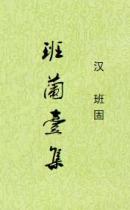 汉 班固
班蘭臺集